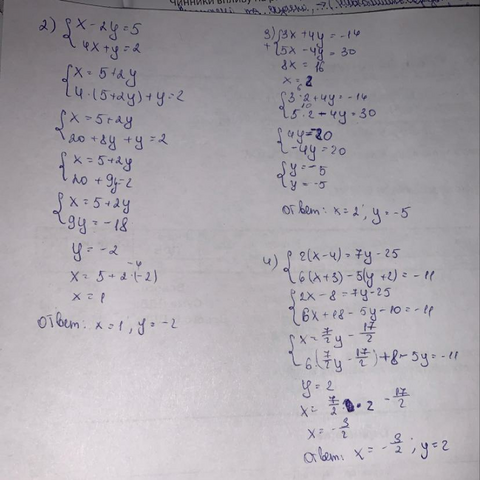 2) { x - 2y = 5
4x + y = 2
{ x = 5 + 2y
4 · (5 + 2y) + y = 2
{ x = 5 + 2y
20 + 8y + y = 2
{ x = 5 + 2y
20 + 9y = 2
{ x = 5 + 2y
9y = -18
y = -2
-4
x = 5 + 2 · (-2)
x = 1
ответ: x = 1, y = -2
3) + { 3x + 4y = -14
5x - 4y = 30
8x = 16
x = 2
6
{ 3 · 2 + 4y = -14
10
5 · 2 + 4y = 30
{ 4y = -20
-4y = 20
{ y = -5
y = -5
ответ: x = 2, y = -5
4) { 2(x - 4) = 7y - 25
6(x + 3) - 5(y + 2) = -11
{ 2x - 8 = 7y - 25
6x + 18 - 5y - 10 = -11
{ x = 7/2 y - 17/2
6 · (7/2 y - 17/2) + 8 - 5y = -11
y = 2
x = 7/2 · 2 - 17/2
x = -3/2
ответ: x = -3/2 ; y = 2